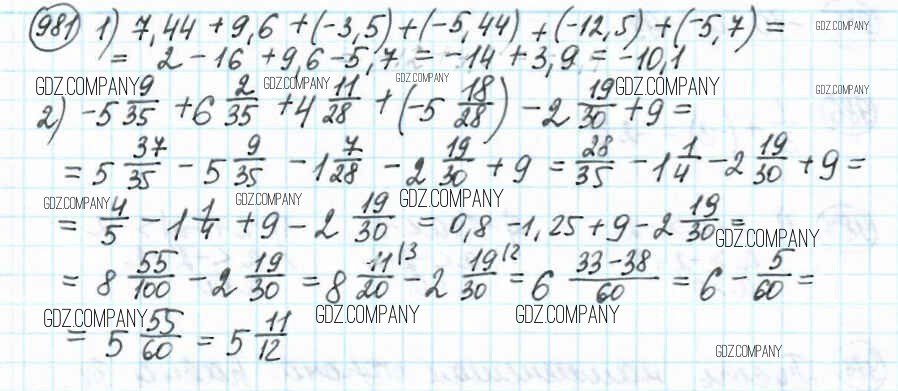 981 1) 7,44 + 9,6 + (-3,5) + (-5,44) + (-12,5) + (-5,7) = GDZ.COMPANY
= 2 - 16 + 9,6 - 5,7 = -14 + 3,9 = -10,1
GDZ.COMPANY GDZ.COMPANY GDZ.COMPANY GDZ.COMPANY GDZ.COMPANY
2) -5 9/35 + 6 2/35 + 4 11/28 + (-5 18/28) - 2 19/30 + 9 =
= 5 37/35 - 5 9/35 - 1 7/28 - 2 19/30 + 9 = 28/35 - 1 1/4 - 2 19/30 + 9 =
GDZ.COMPANY GDZ.COMPANY GDZ.COMPANY
= 4/5 - 1 1/4 + 9 - 2 19/30 = 0,8 - 1,25 + 9 - 2 19/30 =
GDZ.COMPANY
= 8 55/100 - 2 19/30 = 8 11/20 |3 - 2 19/30 |2 = 6 33-38/60 = 6 - 5/60 =
GDZ.COMPANY GDZ.COMPANY GDZ.COMPANY
= 5 55/60 = 5 11/12
GDZ.COMPANY